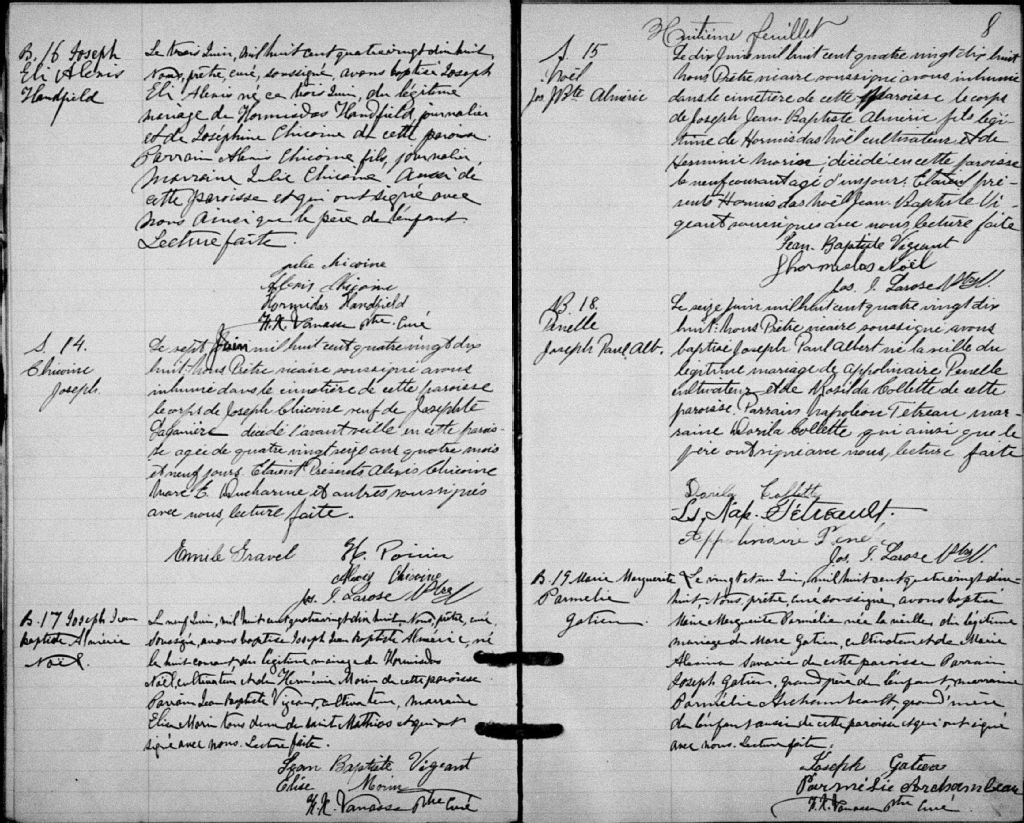 B. 16 Joseph
Eli Alexis
Handfield
Le trois Juin, mil huit cent quatre vingt dix huit,
Nous, prêtre, curé, soussigné, avons baptisé Joseph
Eli Alexis né ce trois Juin, du légitime
mariage de Hormisdas Handfield, journalier
et de Joséphine Chicoine de cette paroisse
Parrain Alexis Chicoine fils, journalier,
Marraine Julie Chicoine Aussi de
cette paroisse et qui ont signé avec
nous ainsi que le père de l'enfant
Lecture faite.
Julie Chicoine
Alexis Chicoine
Hormidas Handfield
Vanasse Ptre Curé
S. 14.
Chicoine
Joseph.
Le sept Juin mil huit cent quatre vingt dix
huit. Nous Prêtre vicaire soussigné avons
inhumé dans le cimetière de cette paroisse
le corps de Joseph Chicoine veuf de Josephte
décédé l'avant veille en cette parois-
se agée de quatre vingt seize ans quatre mois
et neuf jours. Etaient Présents Alexis Chicoine
Marc E. Ducharme et autres soussignés
avec nous, lecture faite.
Emile Gravel H. Poirier
Alexis Chicoine
Jos. I. Larose Ptre V.
B. 17 Joseph Jean
baptiste Almérie
Noël.
Le neuf Juin, mil huit cent quatre vingt dix huit, Nous, prêtre, curé,
soussigné, avons baptisé Joseph Jean Baptiste Almérie, né
le huit courant, du légitime mariage de Hormisdas
Noël, cultivateur et de Herménie Morin de cette paroisse
Parrain Jean Baptiste Vigeant, cultivateur, marraine
Elise Morin tous deux de saint Mathias et qui ont
signé avec nous. Lecture faite.
Jean Baptiste Vigeant
Elise Morin
Vanasse Ptre Curé
Huitième feuillet 8
S. 15
Noël
Jos. J. Bte Almérie
Le dix Juin mil huit cent quatre vingt dix huit
Nous Prêtre vicaire soussigné avons inhumé
dans le cimetière de cette Paroisse le corps
de Joseph Jean-Baptiste Almerie fils légi-
time de Hormisdas Noël cultivateur et de
Herminie Morin décédé en cette paroisse
le neuf courant agé d'un jour. Etaient pré-
sents Hormisdas Noël Jean-Baptiste Vi-
geant soussignés avec nous, lecture faite
Jean-Baptiste Vigeant
Hormidas Noël
Jos. I. Larose Ptre V.
B. 18.
Penelle
Joseph Paul Alb.
Le seize juin mil huit cent quatre vingt dix
huit. Nous Prêtre vicaire soussigné avons
baptisé Joseph Paul Albert né la veille du
légitime mariage de Appolinaire Penelle
cultivateur et de Rosilda Collette de cette
paroisse. Parrain Napoléon Tétreau mar-
raine Dorila Collette qui ainsi que le
père ont signé avec nous, lecture faite
Dorila Collette
Ls. Nap. Tétreault
Appolinaire
Jos. I. Larose Ptre V.
B. 19 Marie Marguerite
Parmélie
Gatien
Le vingt et un Juin, mil huit cent quatre vingt dix-
huit, Nous, prêtre, curé soussigné, avons baptisé
Marie Marguerite Parmélie née la veille du légitime
mariage de Marc Gatien, cultivateur et de Marie
Alexina Savarie de cette paroisse Parrain
Joseph Gatien, grand père de l'enfant, marraine
Parmélie Archambeault, grand'mère
de l'enfant aussi de cette paroisse et qui ont signé
avec nous. Lecture faite.
Joseph Gatien
Parmélie Archambeau
Vanasse Ptre Curé